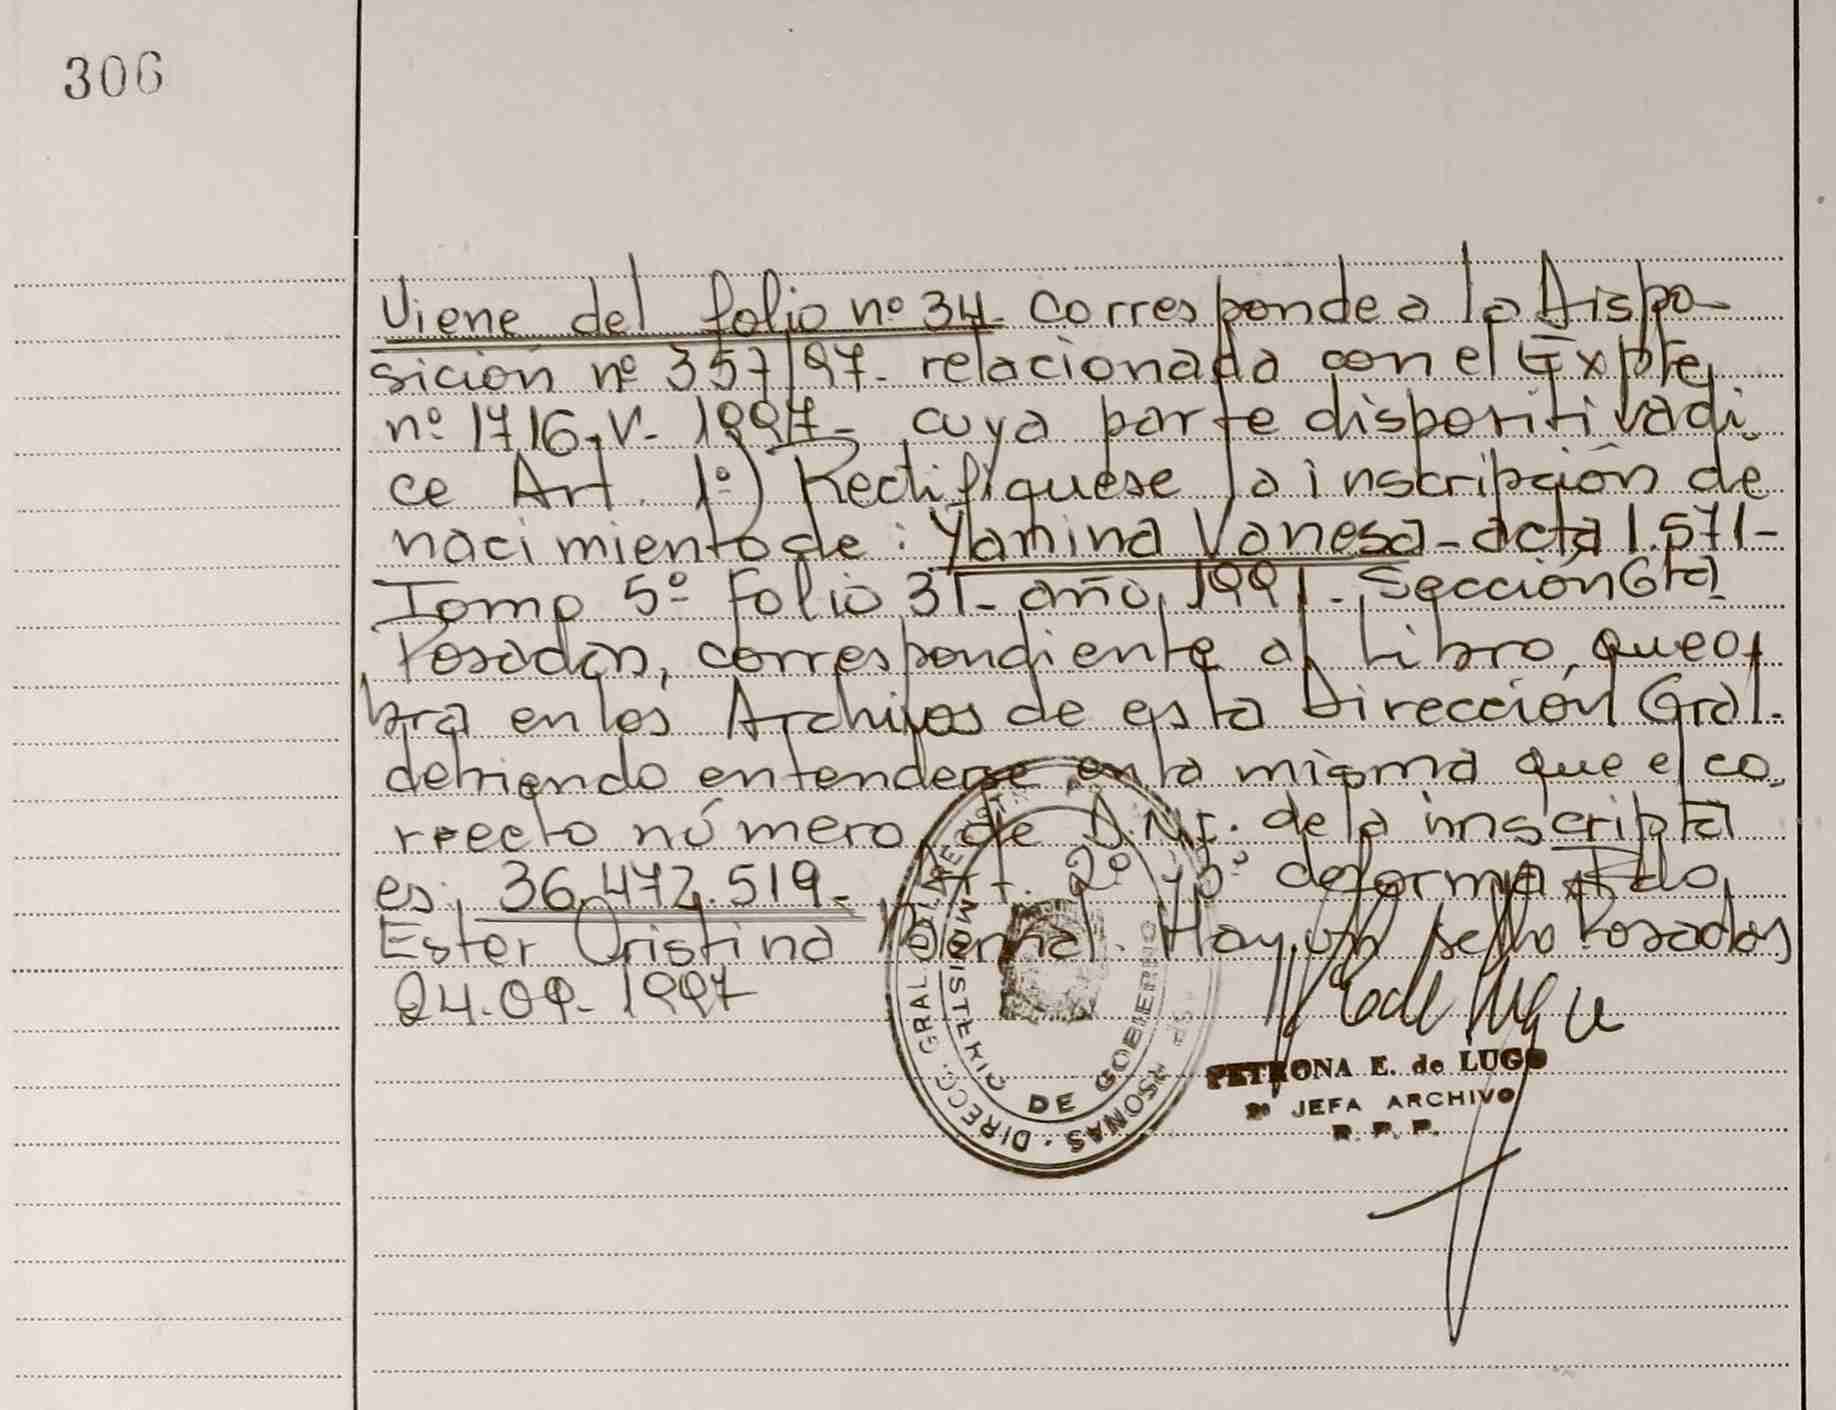 306
Viene del folio nº 34- corresponde a la Dispo-
sición nº 357/97- relacionada con el Expte,
nº 1716-V- 1997- cuya parte dispositiva di
ce Art. 1º) Rectifíquese la inscripción de
nacimiento de: Yanina Vanesa- acta 1.571-
Tomo 5º Folio 31- año 1991- Sección 6ta
Posadas, correspondiente al Libro, que o
bra en los Archivos de esta Dirección Gral.
debiendo entenderse en la misma que el co
rrecto número de D.N.I. de la inscripta
es: 36.472.519- Art. 2º y 3º de forma Fdo,
Ester Cristina Hay un sello Posadas
24.09-1997
DIRECC. GRAL DE
PERSONAS
MINISTERIO DE GOBIERNO
PETRONA E. de LUGO
JEFA ARCHIVO
R. P. P.